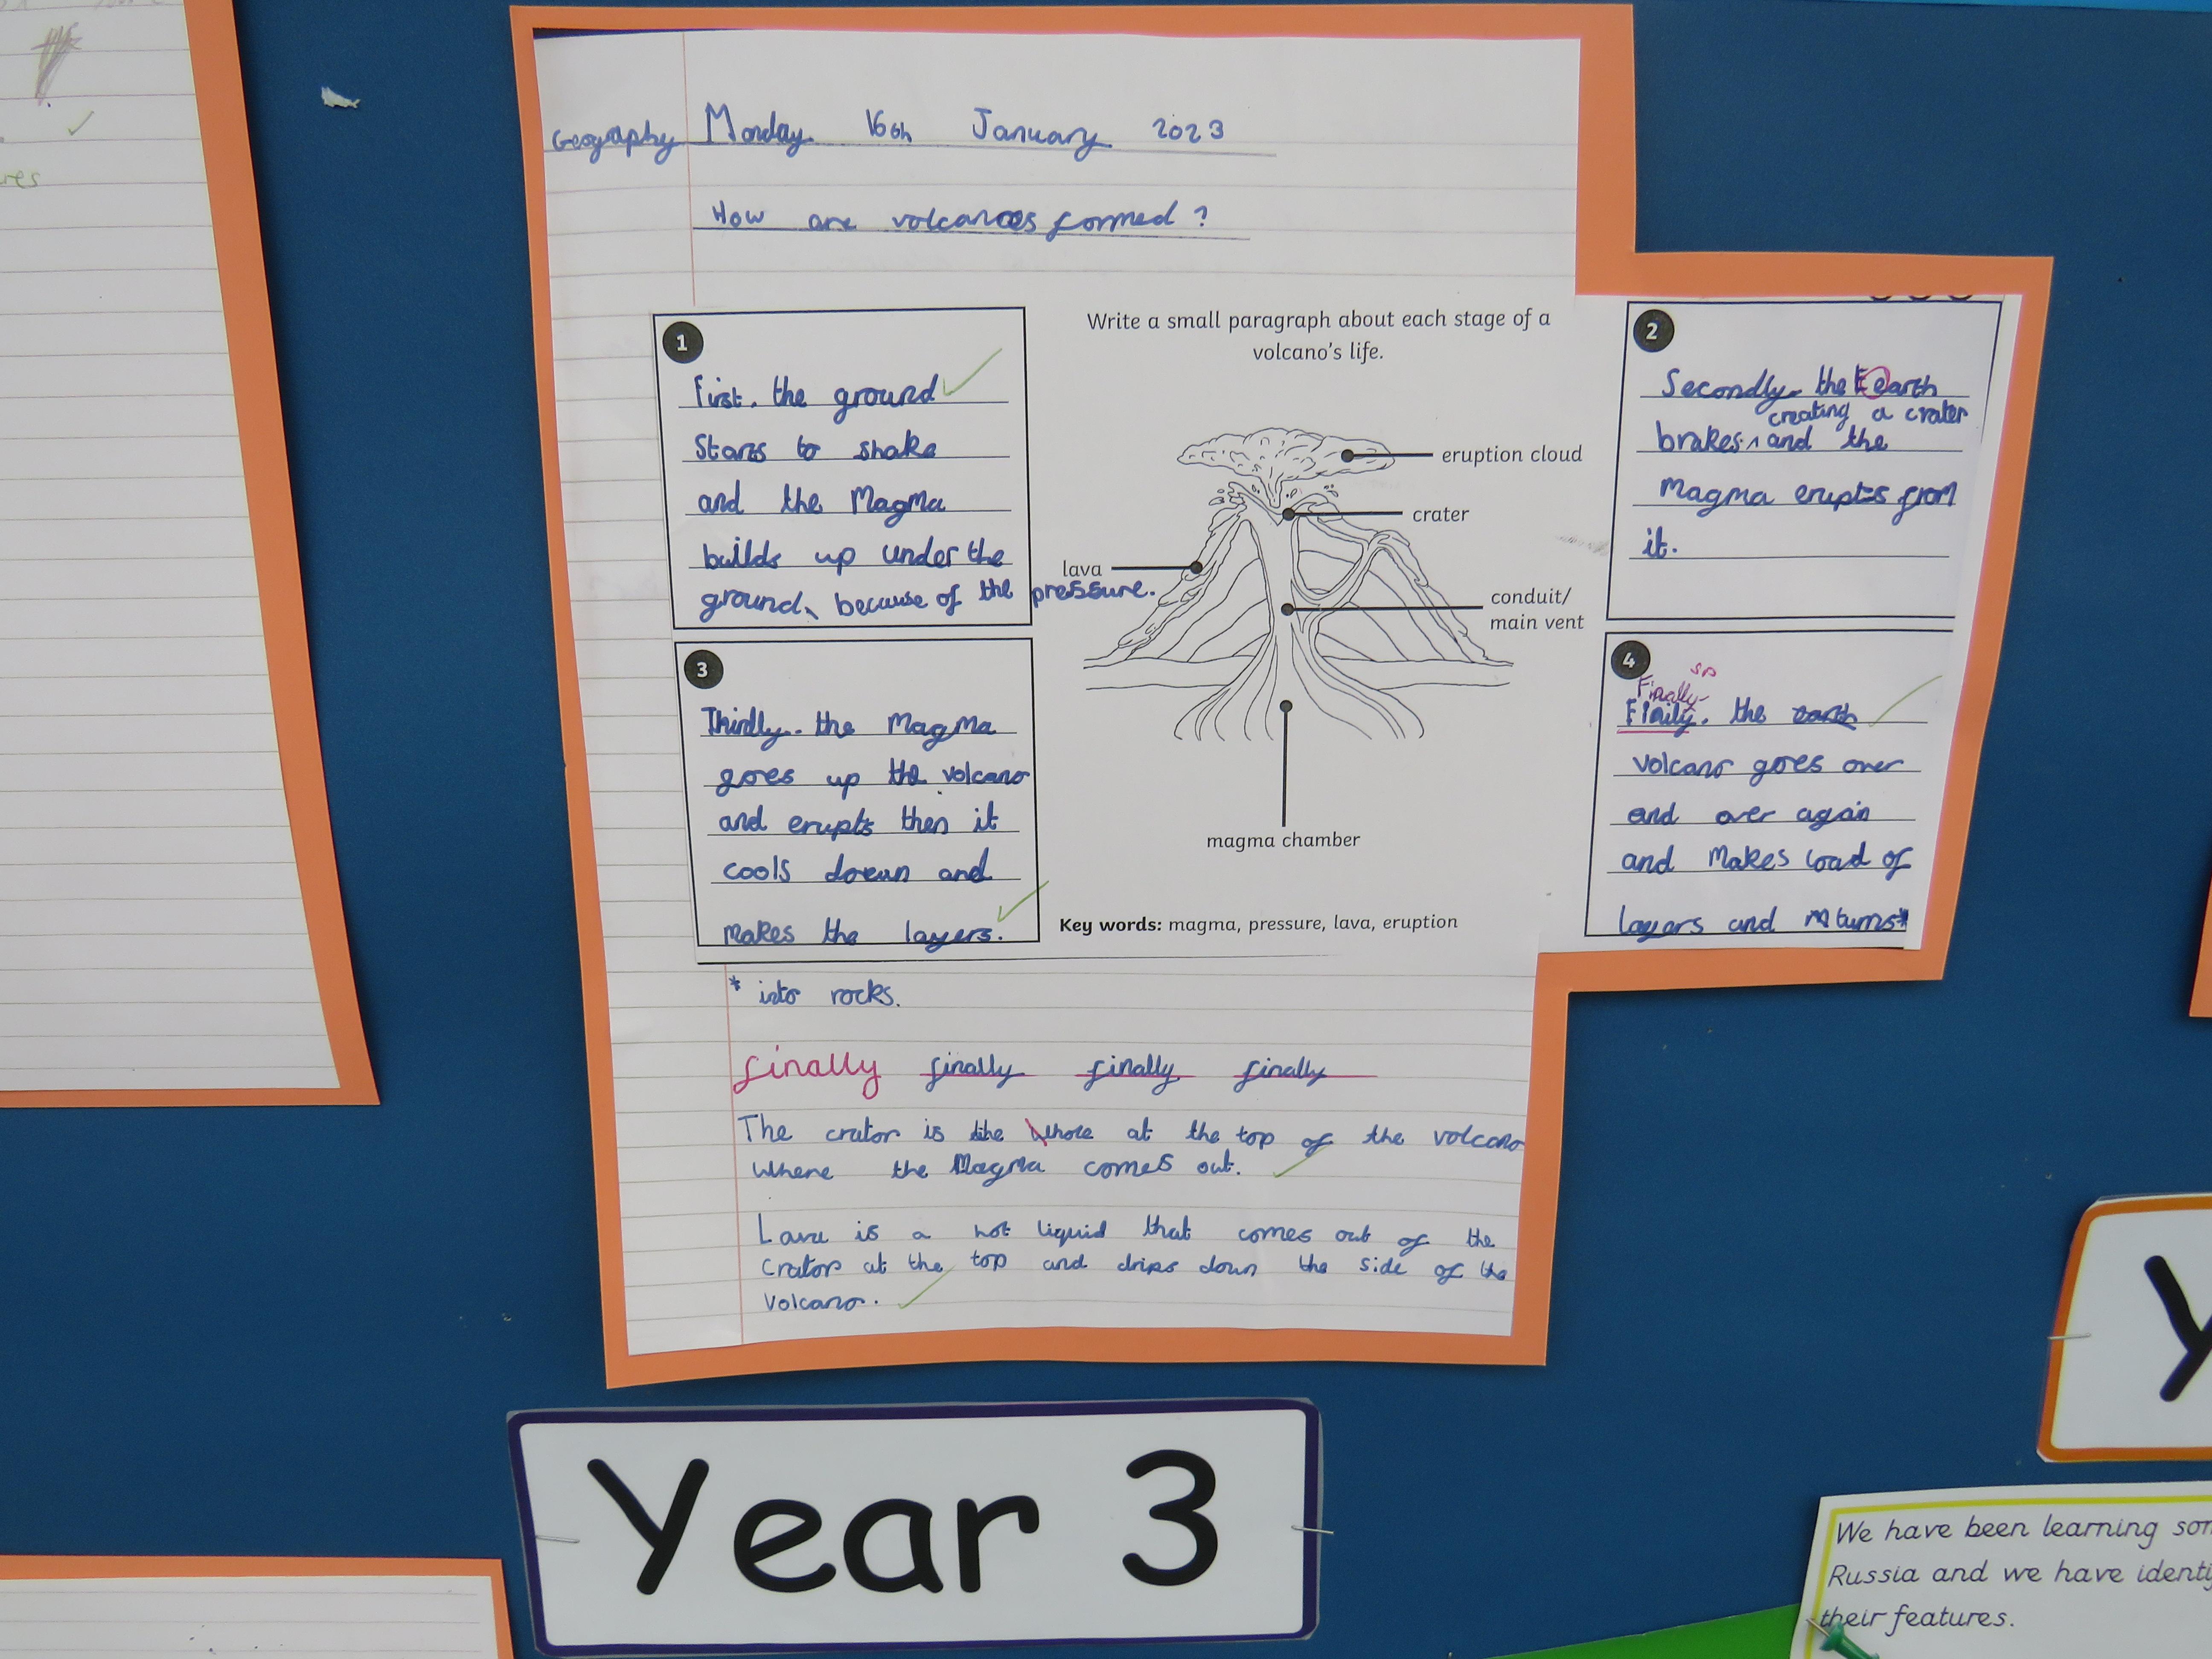 res
Geography Monday 16th January 2023
How are volcanoes formed?
Write a small paragraph about each stage of a
volcano's life.
1
First, the ground
Starts to shake
and the Magma
builds up under the
ground, because of the pressure.
2
Secondly, the Eearth
creating a crater
brakes ^ and the
Magma erupts from
it.
3
Thirdly, the Magma
goes up the volcano
and erupts then it
cools down and
Makes the layers.
4
sp
Finally
Finily, the earth
volcano goes over
and over again
and Makes load of
layers and turns*
eruption cloud
crater
lava
conduit/
main vent
magma chamber
Key words: magma, pressure, lava, eruption
* into rocks.
finally finally finally finally
The crator is the whole at the top of the volcano
where the Magma comes out.
Lava is a hot liquid that comes out of the
crator at the top and drips down the side of the
volcano.
Year 3
Y
We have been learning som
Russia and we have identi
their features.